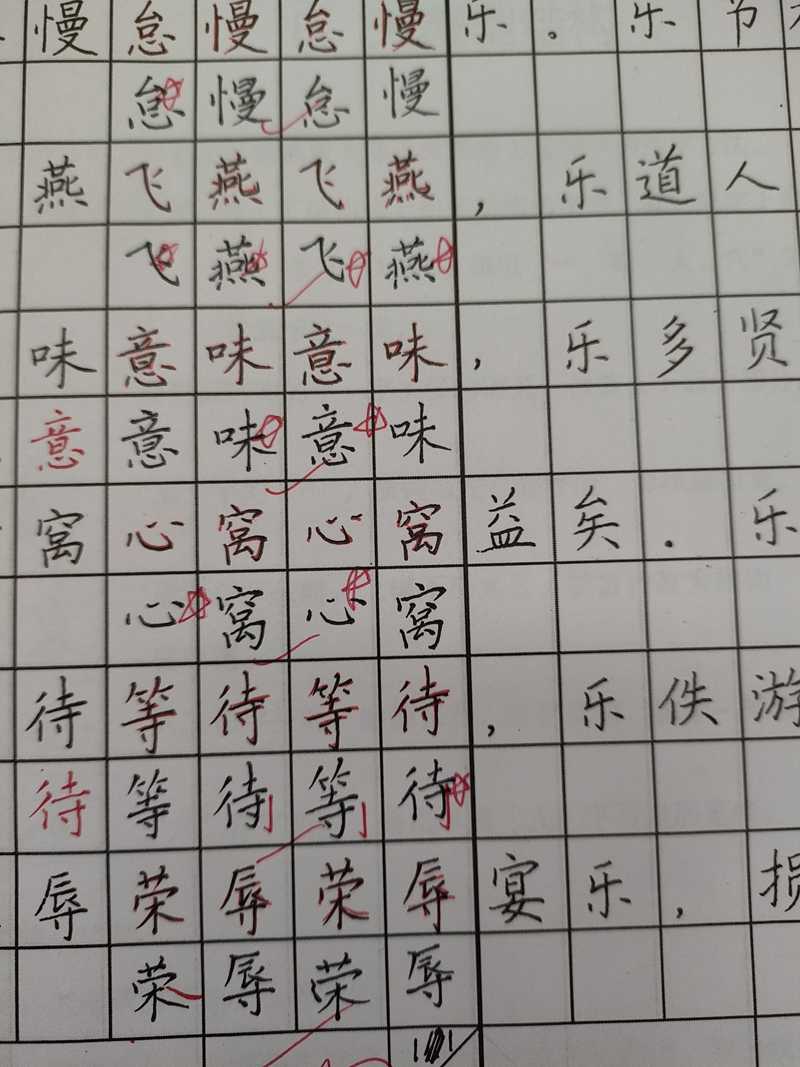 慢怠慢怠慢乐。乐节
怠慢怠慢
燕飞燕飞燕，乐道人
飞燕飞燕
味意味意味，乐多贤
意意味意味
窝心窝心窝益矣.乐
心窝心窝
待等待等待，乐佚游
待等待等待
辱荣辱荣辱宴乐，损
荣辱荣辱